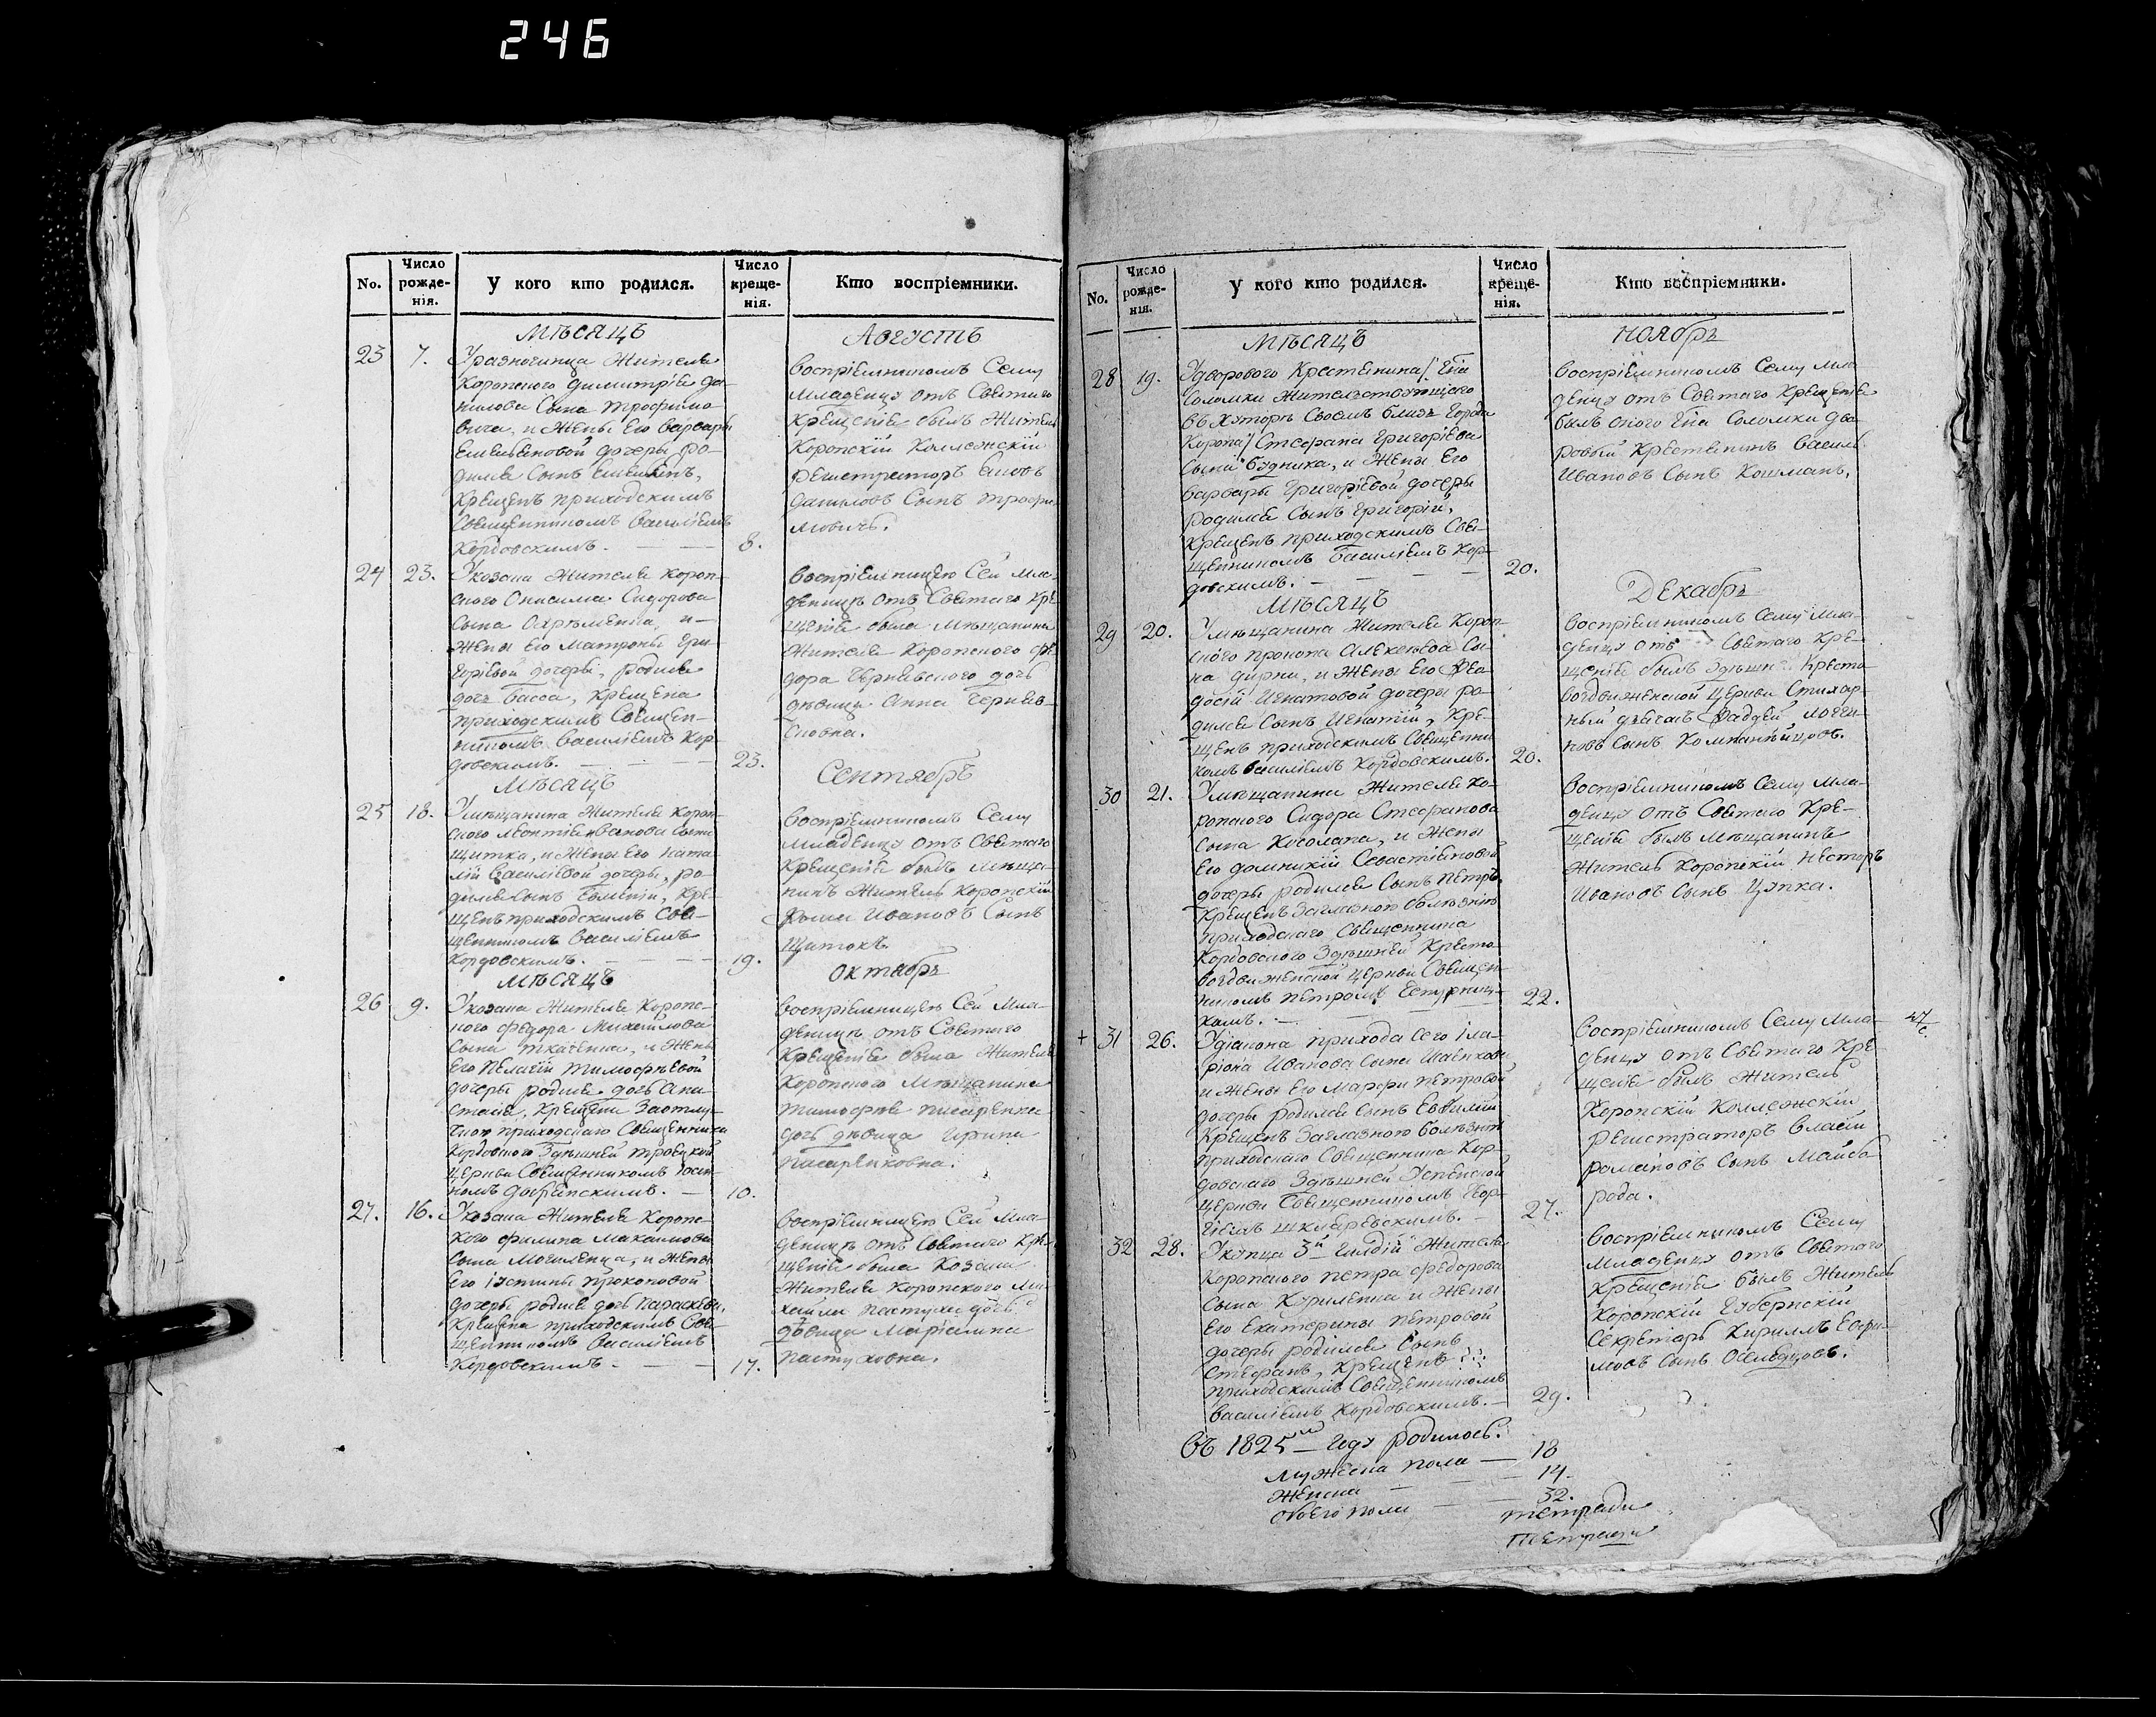 246
No.
Число рожде-нія.
У кого кто родился.
Число креще-нія.
Кто воспріемники.
Мѣсяцъ
Августъ
23 7. У разночинца Жителя
Коропского Димитрія Да-
нилова Сына Трофимо-
вича, и Жены Его Варвары
Емельяновой дочеры ро-
дился Сынъ Емельянъ,
Крещенъ приходскимъ
Священникомъ Василіемъ
Кордовскимъ. — — 8.
Воспріемникомъ Сему
Младенцу отъ Святаго
Крещенія былъ Житель
Коропскій Коллежскій
Регистраторъ
Даниловъ Сынъ Трофи-
мовичъ.
24 23. У Козака Жителя Короп-
ского Онисима Сидорова
Сына и
Жены Его Матроны Гри-
горіевой дочеры, родилась
дочь Васса, Крещена
приходскимъ Священ-
никомъ Василіемъ Кор-
довскимъ. — — — 23.
Воспріемницею Сей Мла-
деницѣ отъ Святаго Кре-
щенія была Мѣщанина
Жителя Коропского Фе-
дора Чернявского дочь
дѣвица Анна Черняв-
сковна.
Мѣсяцъ
Сентябрь
25 18. У мѣщанина Жителя Короп-
ского Леонтія Иванова Сына
Щитка, и Жены Его Ната-
ліи Василіевой дочеры, ро-
дился Сынъ Кре-
щенъ приходскимъ Свя-
щенникомъ Василіемъ
Кордовскимъ. — — — 19.
Воспріемникомъ Сему
Младенцу отъ Святаго
Крещенія былъ Мѣща-
нинъ Житель Коропскій
Фома Ивановъ Сынъ
Щитокъ
Мѣсяцъ
Октябрь
26 9. У козака Жителя Коропс-
кого Федора Михайлова
Сына Ткаченка, и Жены
Его Пелагіи Тимофѣевой
дочеры родилась дочь Ана-
стасія, Крещена За отлу-
чкою приходскаго Священника
Кордовского Здѣшней Троецкой
Церкви Священникомъ
10.
Воспріемницею Сей Мла-
деницѣ отъ Святаго
Крещенія была Жителя
Коропского Мѣщанина
Тимофѣя Писаренка
дочь дѣвица Ирина
Писаренковна.
27. 16. У Козака Жителя Коропс-
кого Филипа Максимова
Сына Могиленца, и Жены
Его Іустины Прокоповой
дочеры родилась дочь Параскевія,
Крещена приходскимъ Свя-
щенникомъ Василіемъ
Кордовскимъ. — — 17.
Воспріемницею Сей Мла-
деницѣ отъ Святаго Кре-
щенія была Козака
Жителя Коропского Ми-
хайла Пастуха дочь
дѣвица Маріамна
Пастуховна.
No.
Число рожде-нія.
У кого кто родился.
Число креще-нія.
Кто воспріемники.
Мѣсяцъ
Ноябрь
28 19. У дворового Крестянина/Еѳиа
Соломки Жителствующаго
въ Хуторѣ Своемъ близъ Города
Коропа/Стефана Григоріева
Сына Будника, и Жены Его
Варвары Григоріевой дочеры
родился Сынъ Григорій,
Крещенъ приходскимъ Свя-
щенникомъ Василіемъ Кор-
довскимъ. — — — — 20.
Воспріемникомъ Сему Мла-
денцу отъ Святаго Крещенія
былъ оного Соломки дво-
ровый Крестянинъ Василь
Ивановъ Сынъ Кошманъ.
Мѣсяцъ
Декабрь
29 20. У мѣщанина Жителя Короп-
ского Прокопа Алексѣева Сы-
на Дирки, и Жены Его Ѳео-
досіи Игнатовой дочеры ро-
дился Сынъ Игнатій, Кре-
щенъ приходскимъ Священни-
комъ Василіемъ Кордовскимъ. 20.
Воспріемникомъ Сему Мла-
денцу отъ Святаго Кре-
щенія былъ Здѣшн: Кресто-
воздвиженской Церкви Стихар-
ный дячокъ Фаддей Логги-
новъ Сынъ Компанѣйцовъ.
30 21. У мѣщанина Жителя Ко-
ропского Сидора Стефанова
Сына Косолапа, и Жены
Его Домникіи Севастіяновой
дочеры родился Сынъ Петръ.
Крещенъ За болѣзнію
приходскаго Священника
Кордовского Здѣшней Кресто-
воздвиженской Церкви Священ-
никомъ Петромъ
комъ. — 22.
Воспріемникомъ Сему Мла-
денцу отъ Святаго Кре-
щенія былъ Мѣщанинъ
Житель Коропскій Несторъ
Ивановъ Сынъ Цупка.
+ 31 26. У діакона прихода Сего Ила-
ріона Иванова Сына
и Жены Его Марфы Петровой
дочеры родился Сынъ
Крещенъ За болѣзнію
приходскаго Священника Кор-
довскаго Здѣшней Успенской
Церкви Священникомъ Геор-
гіемъ Шкляревскимъ. — 27.
Воспріемникомъ Сему Мла-
денцу отъ Святаго Кре-
щенія былъ Житель
Коропскій Коллежскій
Регистраторъ Власій
Романовъ Сынъ Майбо-
рода.
32 28. У Купца 3й Гилдіи Жителя
Коропского Петра Федорова
Сына Куриленка и Жены
Его Екатерины Петровой
дочеры родился Сынъ
Стефанъ, Крещенъ
приходскимъ Священникомъ
Василіемъ Кордовскимъ. — 29.
Воспріемникомъ Сему
Младенцу отъ Святаго
Крещенія былъ Житель
Коропскій Губернскій
Секретарь Кириллъ Ефи-
мовъ Сынъ
Въ 1825м — Году родилось.
Мужеска пола — 18
Женска — — 14.
Обоего пола — — 32.
тетради
тетради